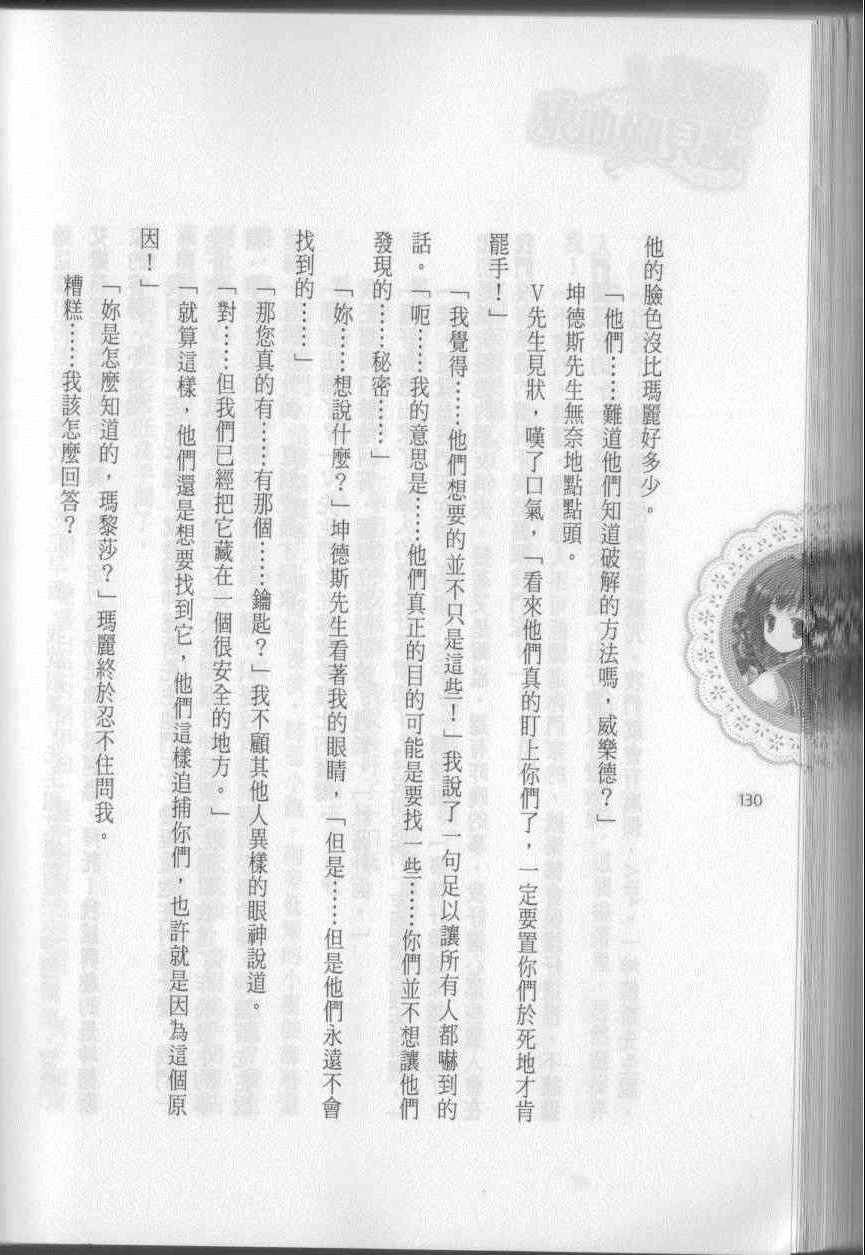 他的臉色沒比瑪麗好多少。
「他們……難道他們知道破解的方法嗎,威樂德?」
坤德斯先生無奈地點點頭。
V先生見狀,嘆了口氣,「看來他們真的盯上你們了,一定要置你們於死地才肯
罷手!」
「我覺得……他們想要的並不只是這些!」我說了一句足以讓所有人都嚇到的
話。「呃……我的意思是……他們真正的目的可能是要找一些……你們並不想讓他們
發現的……秘密……」
「妳……想說什麼?」坤德斯先生看著我的眼睛,「但是……但是他們永遠不會
找到的……」
「那您真的有……有那個……鑰匙?」我不顧其他人異樣的眼神說道。
「對……但我們已經把它藏在一個很安全的地方。」
「就算這樣,他們還是想要找到它,他們這樣追捕你們,也許就是因為這個原
因!」
「妳是怎麼知道的,瑪黎莎?」瑪麗終於忍不住問我。
糟糕……我該怎麼回答?
130